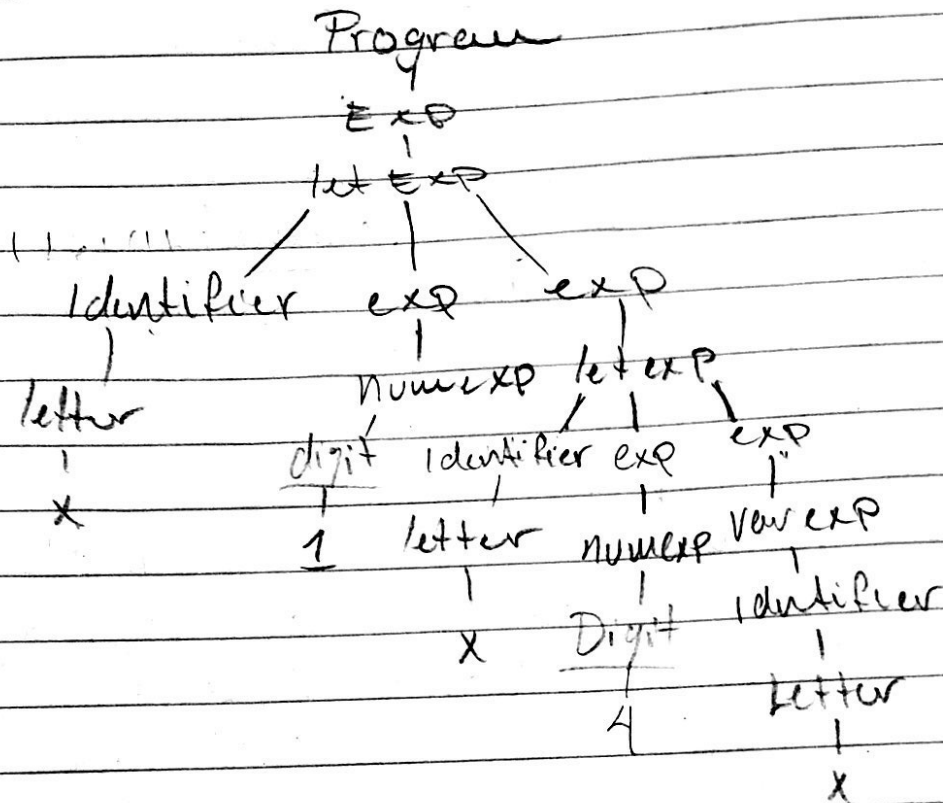 Program
Exp
let Exp
Identifier exp exp
numexp let exp
letter digit Identifier exp exp
x 1 letter numexp varexp
x Digit identifier
4 Letter
x